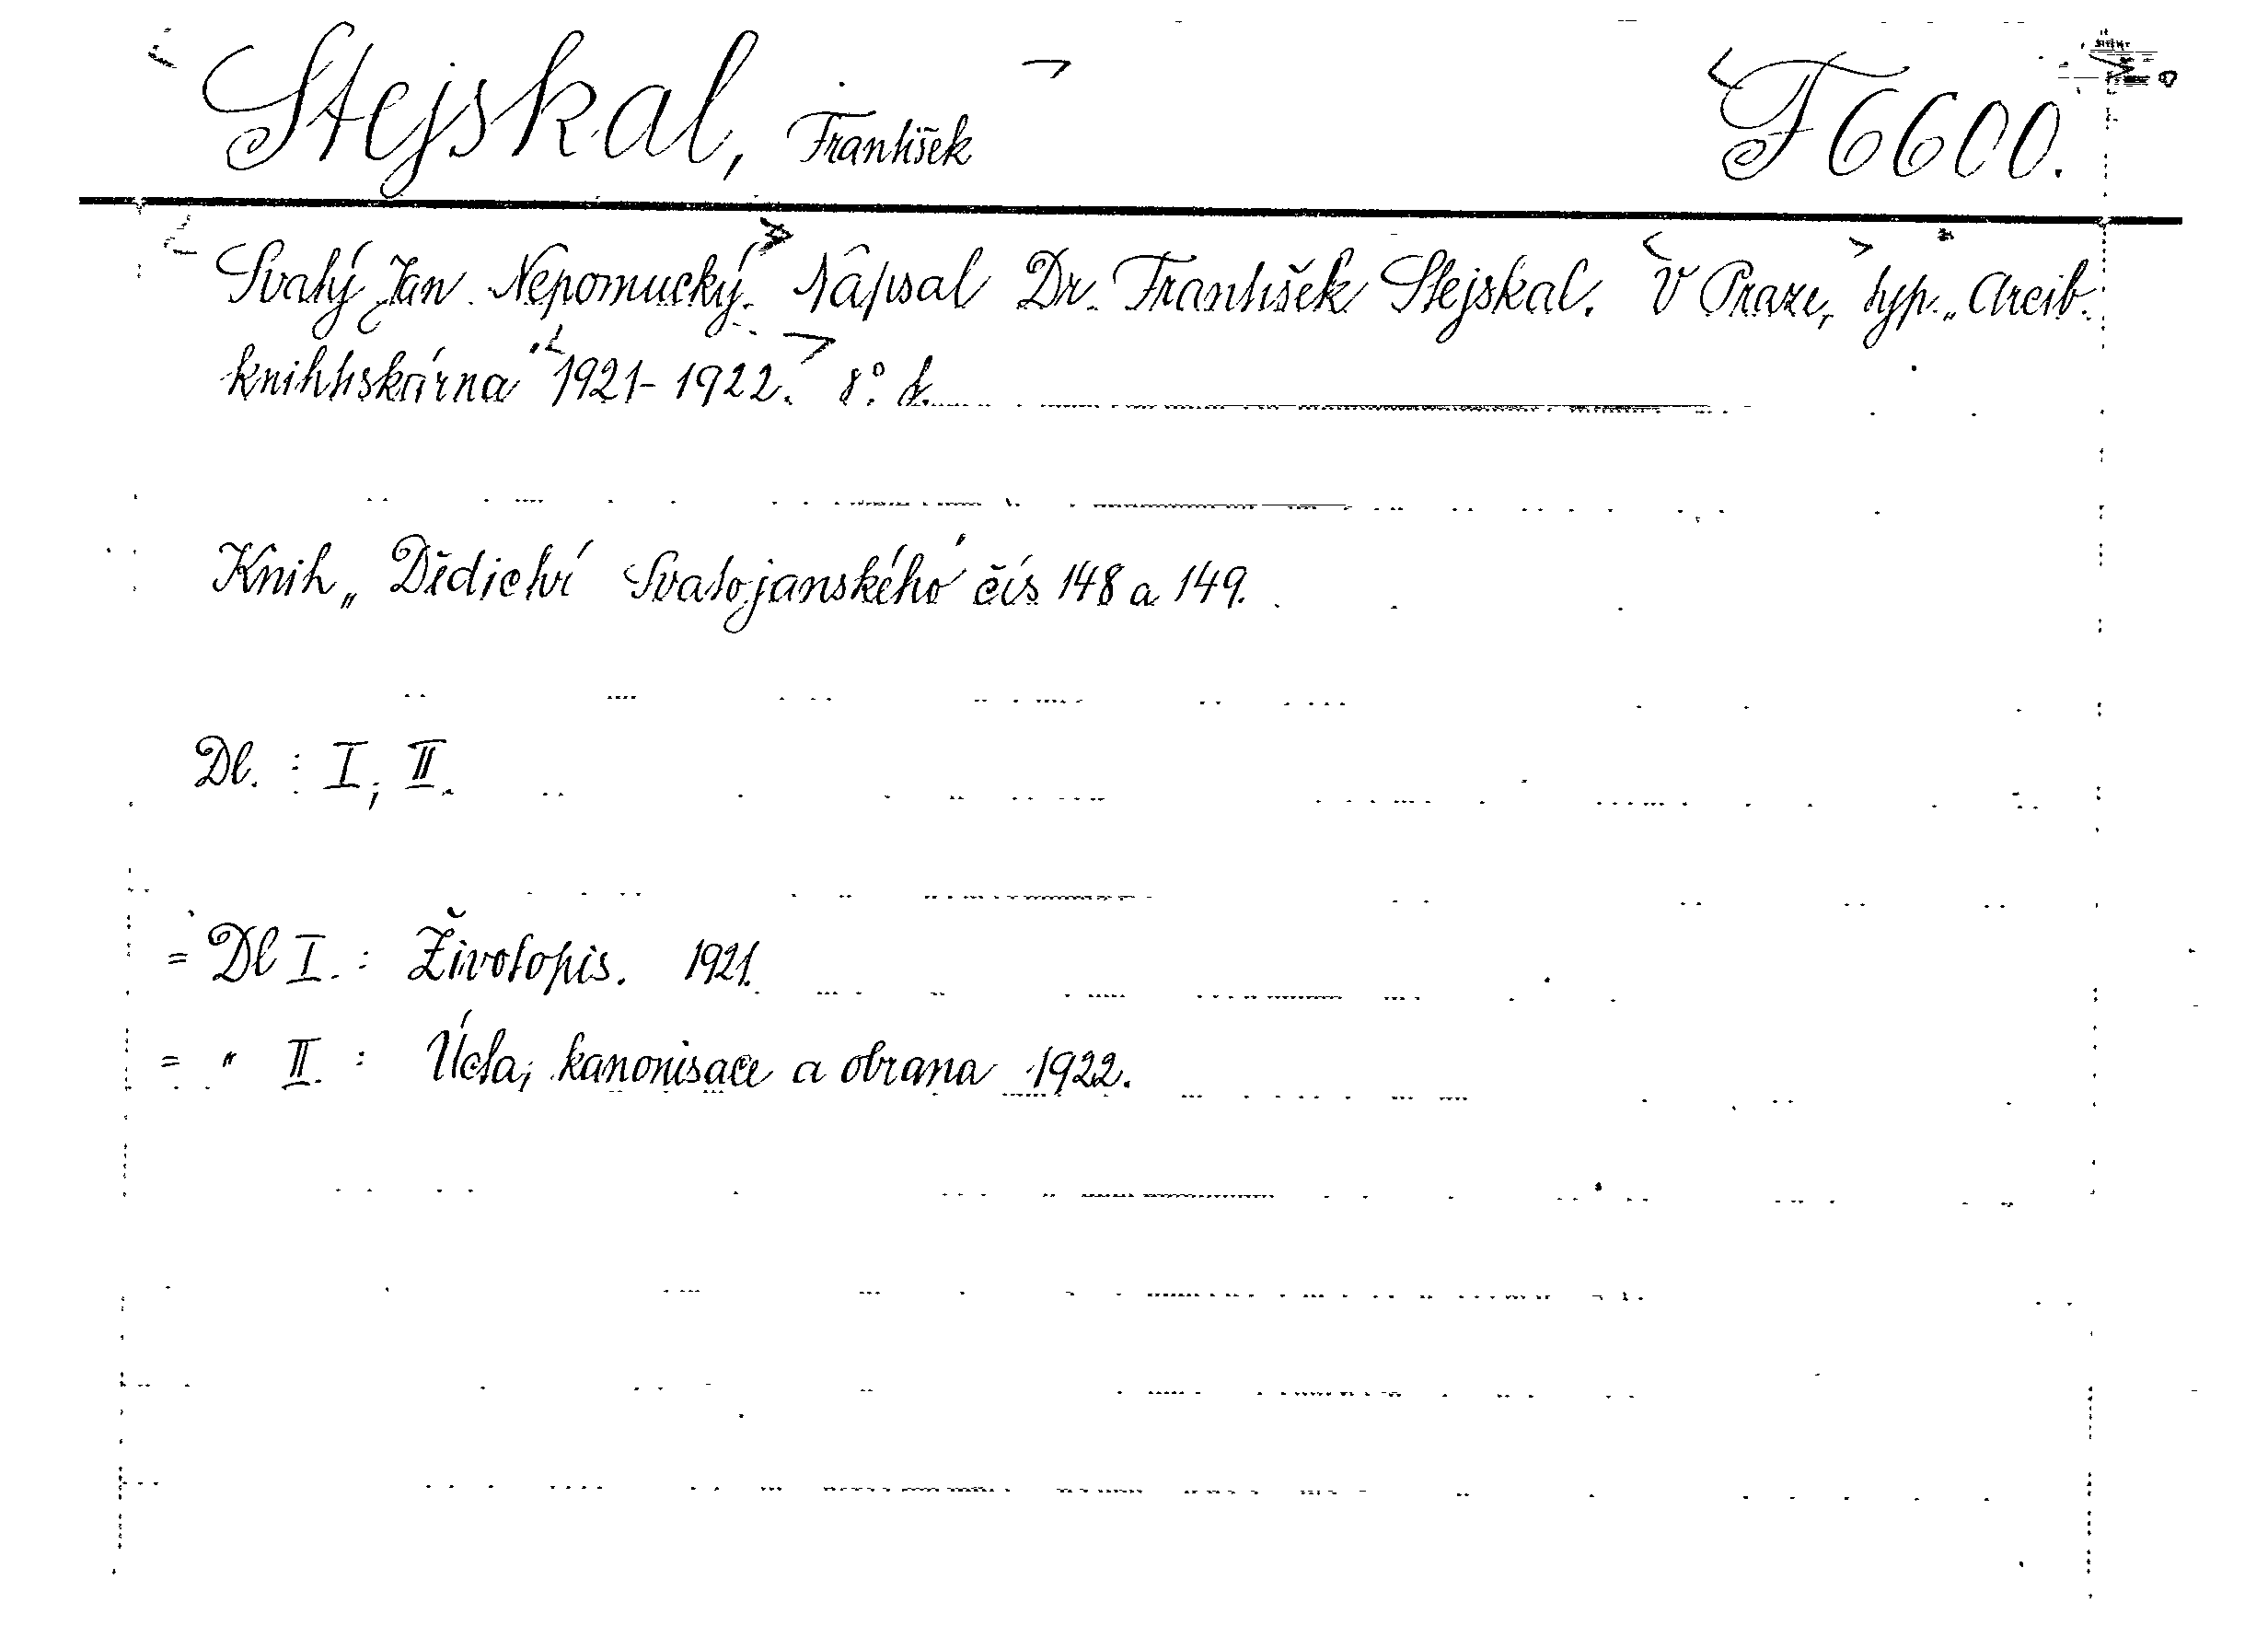 Stejskal, František F 6600.
Svatý Jan Nepomucký. Napsal Dr. František Stejskal. V Praze, typ. „Arcib.
knihtiskárna" 1921-1922. 8°. d.
Knih „Dědictví Svatojanského" čís 148 a 149.
Dl. : I, II.
= Dl I. : Životopis. 1921.
= " II. : Úcta, kanonisace a obrana 1922.